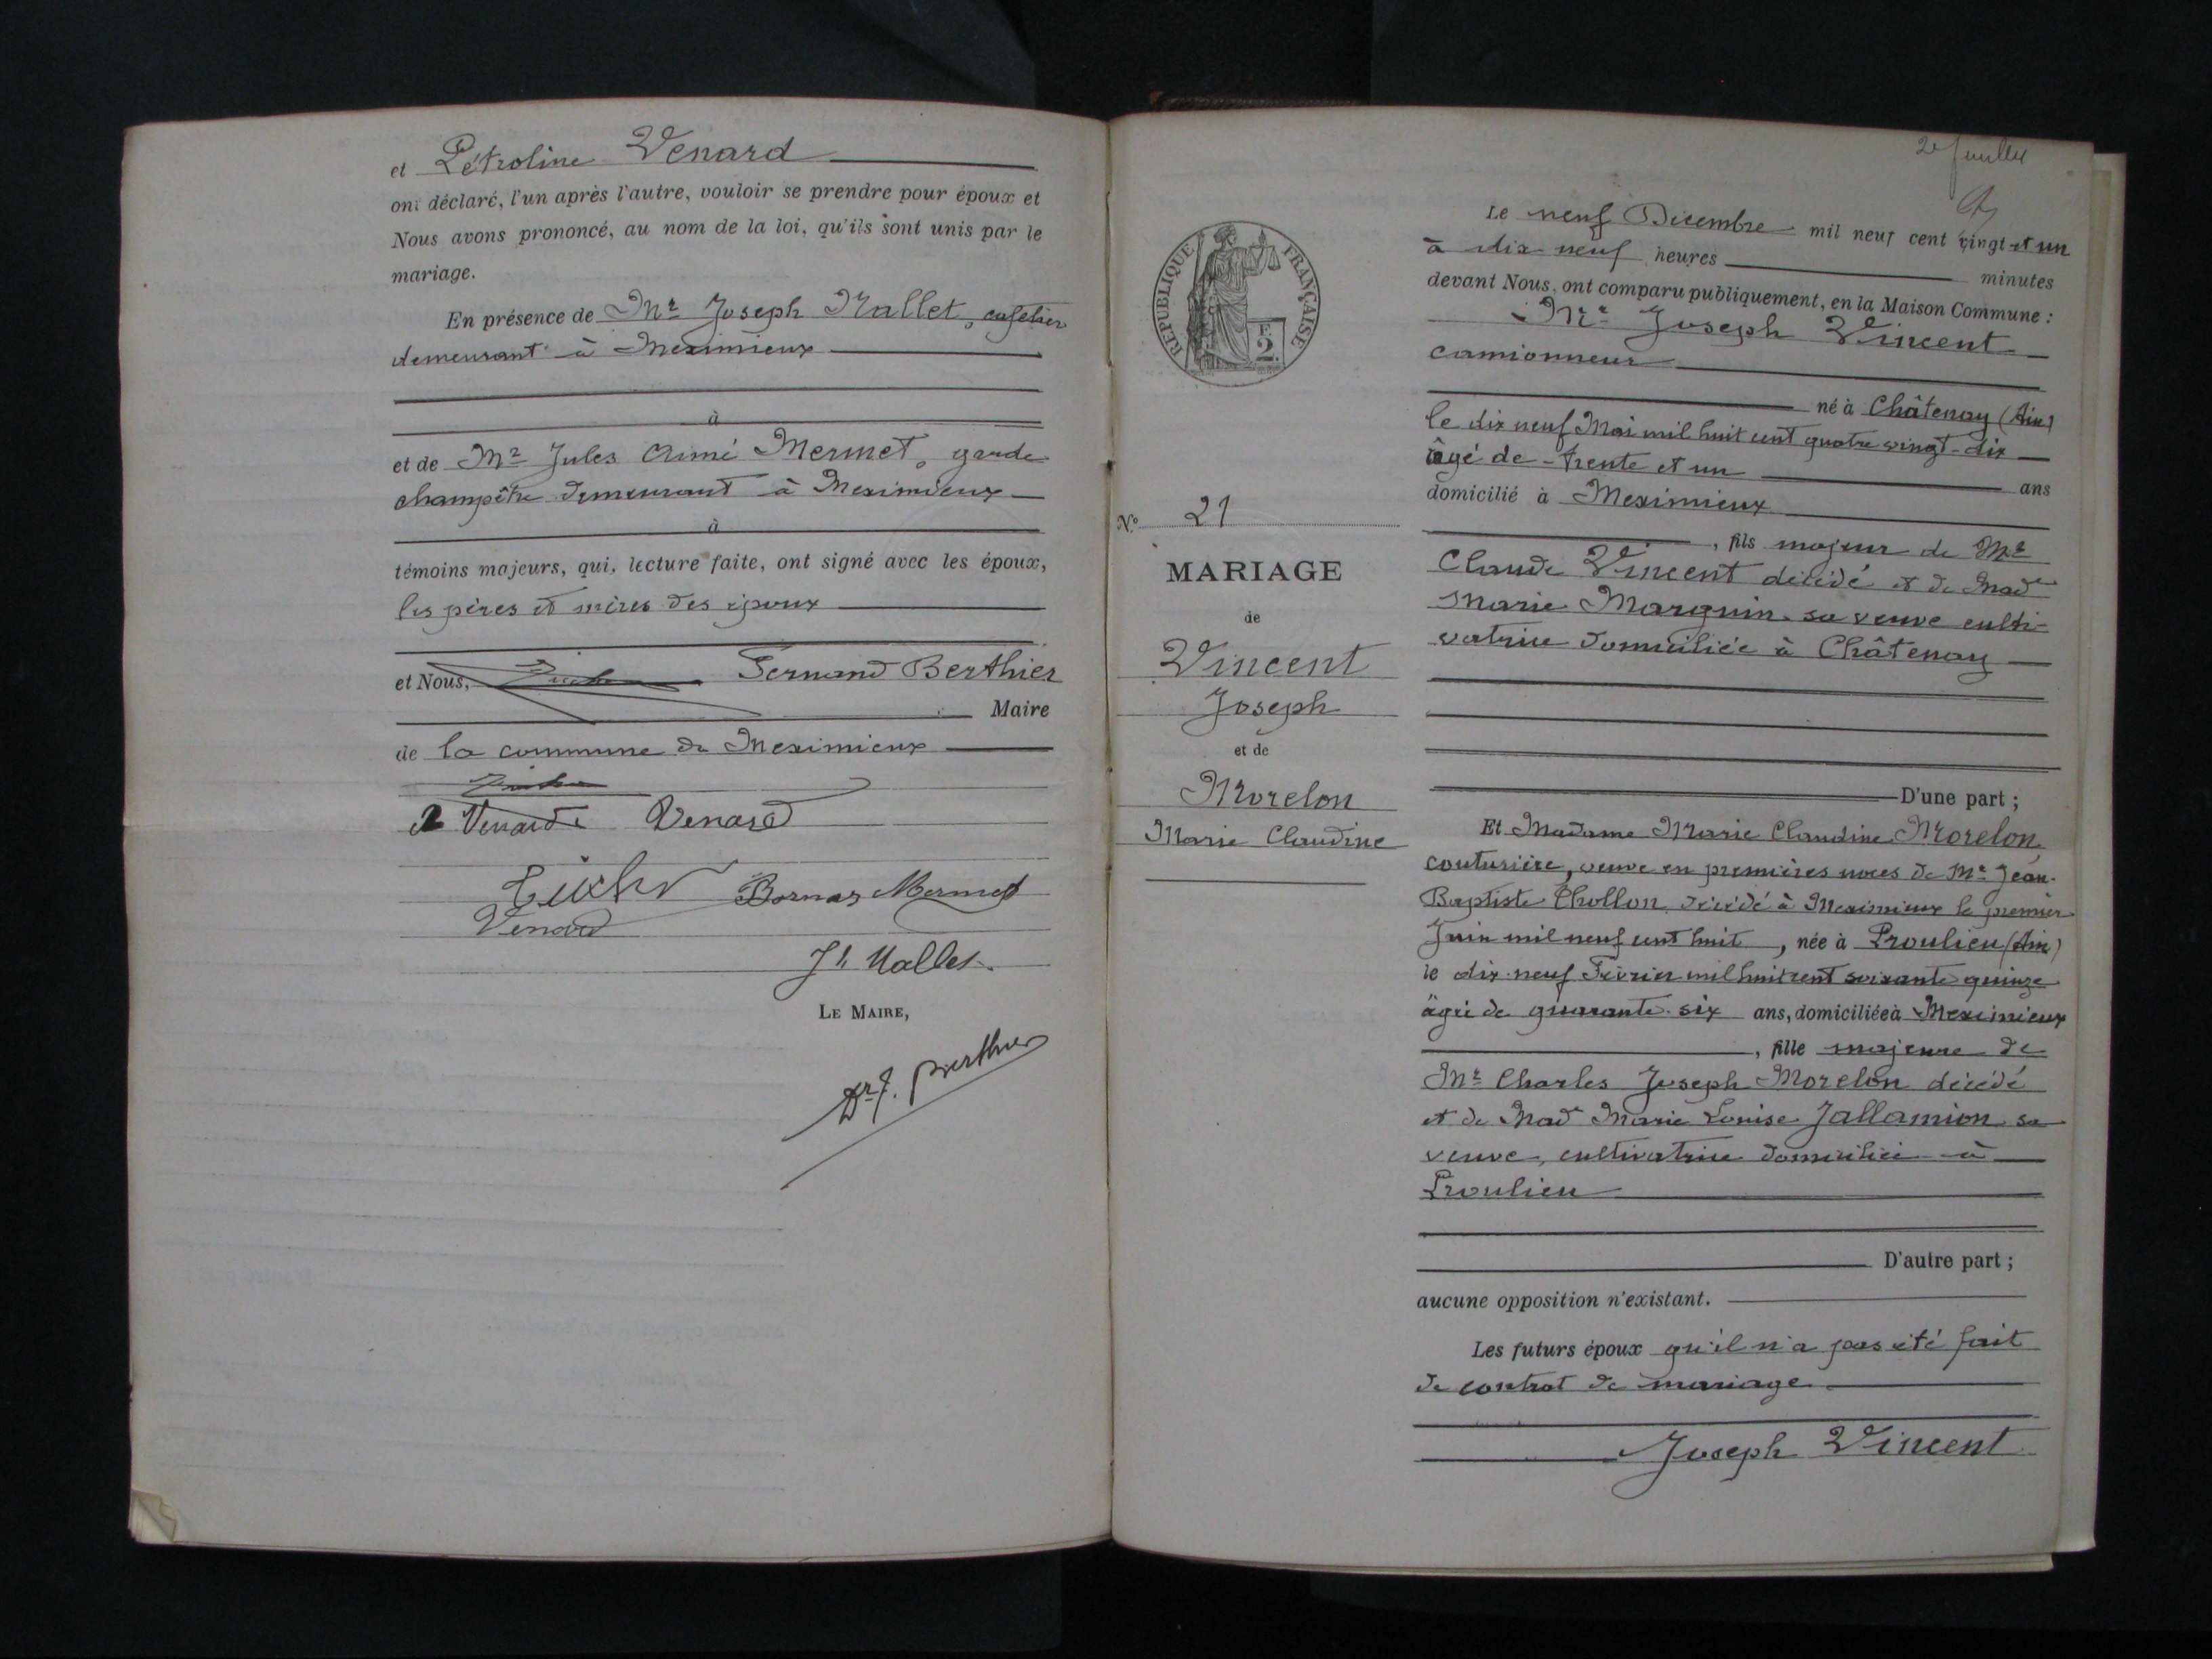 et Pétroline Venard
ont déclaré, l'un après l'autre, vouloir se prendre pour époux et
Nous avons prononcé, au nom de la loi, qu'ils sont unis par le
mariage.
En présence de Mr Joseph Mallet, cafetier
demeurant à Meximieux
à
et de Mr Jules Aimé Mermet, garde
champêtre demeurant à Meximieux
à
témoins majeurs, qui, lecture faite, ont signé avec les époux,
les pères et mères des époux
et Nous, Fernand Berthier
Maire
de la commune de Meximieux
Venard Venard
Bornaz Mermet
Venard
Jh Mallet
LE MAIRE,
Dr F. Berthier
2e feuillet
RÉPUBLIQUE FRANÇAISE
2 F.
No 21
MARIAGE
de
Vincent
Joseph
et de
Morelon
Marie Claudine
Le neuf Décembre mil neuf cent vingt et un
à dix neuf heures minutes
devant Nous, ont comparu publiquement, en la Maison Commune :
Mr Joseph Vincent
camionneur
né à Châtenay (Ain)
le dix neuf Mai mil huit cent quatre vingt-dix
âgé de trente et un ans
domicilié à Meximieux
, fils majeur de Mr
Claude Vincent décédé et de Made
Marie Marguin sa veuve culti-
vatrice domiciliée à Châtenay
D'une part ;
Et Madame Marie Claudine Morelon,
couturière, veuve en premières noces de Mr Jean-
Baptiste Chollon décédé à Meximieux le premier
Juin mil neuf cent huit, née à Proulieu (Ain)
le dix-neuf Février mil huit cent soixante quinze
âgée de quarante-six ans, domiciliée à Meximieux
, fille majeure de
Mr Charles Joseph Morelon décédé
et de Made Marie Louise Jallamion sa
veuve, cultivatrice domiciliée à
Proulieu
D'autre part ;
aucune opposition n'existant.
Les futurs époux qu'il n'a pas été fait
de contrat de mariage
Joseph Vincent